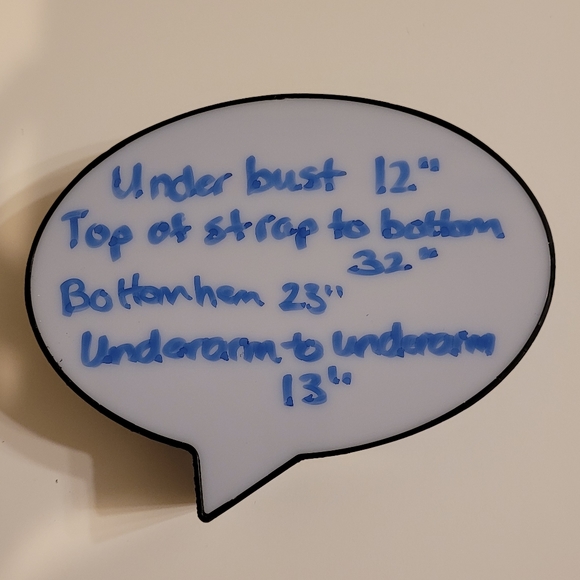 Under bust 12"
Top of strap to bottom
32"
Bottom hem 23"
Underarm to underarm
13"